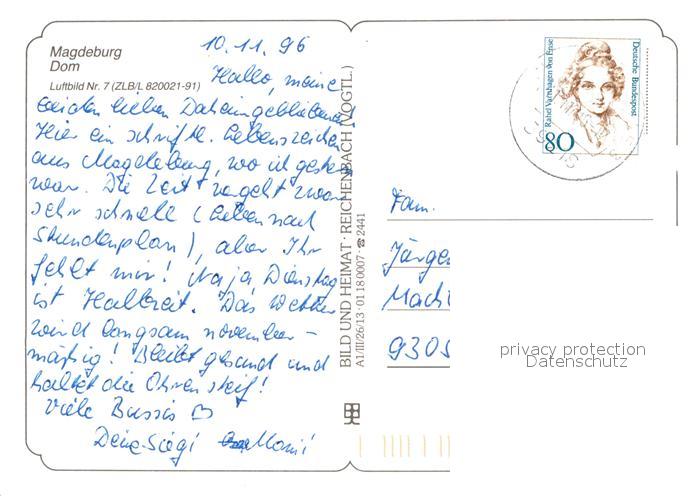 Magdeburg
Dom
Luftbild Nr. 7 (ZLB/L 820021-91)
10.11.96
Hallo, meine
beiden lieben Daheimgebliebenen!
Hier ein schriftl. Lebenszeichen
aus Magdeburg, wo ich gestern
war. Die Zeit vergeht zwar
sehr schnell (Leben nach
Stundenplan), aber Ihr
fehlt mir! Na ja, Dienstag
ist Halbzeit. Das Wetter
wird langsam november-
mäßig! Bleibt gesund und
haltet die Ohren steif!
Viele Bussis
Deine Siegi Mami
BILD UND HEIMAT · REICHENBACH (VOGTL)
A1/III/26/13 · 01 18 0007 · ☎ 2441
Rahel Varnhagen von Ense
Deutsche Bundespost
80
Fam.
Jürge
Mach
9305
privacy protection
Datenschutz